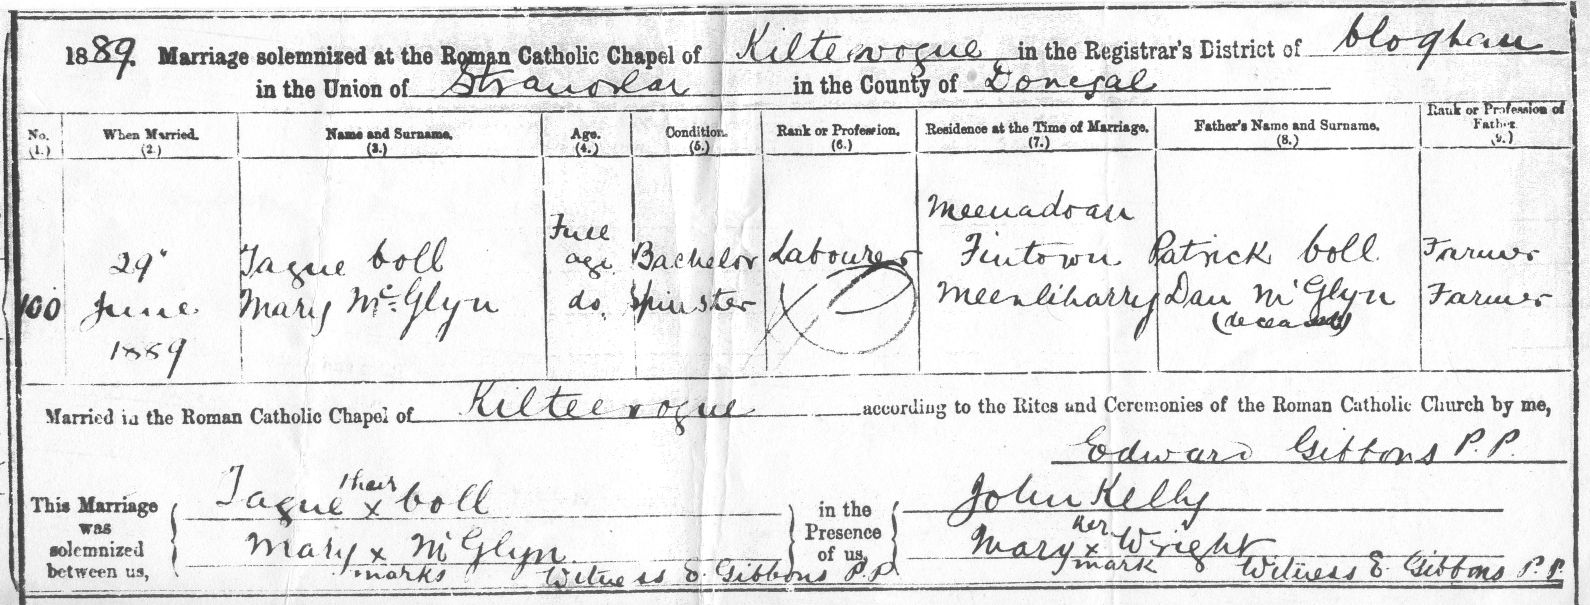 1889. Marriage solemnized at the Roman Catholic Chapel of Kilteevogue in the Registrar's District of Cloghan
in the Union of Stranorlar in the County of Donegal
No. (1.) When Married. (2.) Name and Surname. (3.) Age. (4.) Condition. (5.) Rank or Profession. (6.) Residence at the Time of Marriage. (7.) Father's Name and Surname. (8.) Rank or Profession of Father. (9.)
Meenadoan
29" Tague Coll Full age Bachelor Labourer Fintown Patrick Coll Farmer
100 June Mary McGlyn do. Spinster Meenliharry Dan McGlyn Farmer
(deceased)
1889
Married in the Roman Catholic Chapel of Kilteevogue according to the Rites and Ceremonies of the Roman Catholic Church by me,
Edward Gibbons P.P.
This Marriage was solemnized between us,
Tague x Coll
their
Mary x McGlyn
marks
Witness E. Gibbons P.P.
in the Presence of us,
John Kelly
her
Mary x Wright
mark
Witness E. Gibbons P.P.